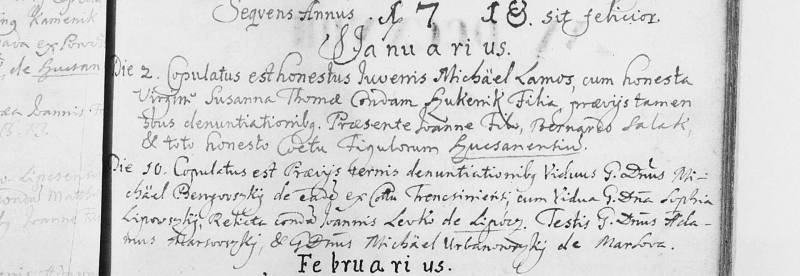 Sequens Annus . 1718. sit felicior.
Januarius.
Die 2. Copulatus est honestus Iuvenis Michäel Lamos, cum honesta
Virgine Susanna Thomæ Condam Hukenik Filia, prævijs tamen
3bus denuntiationibq. Præsente Joanne Filo, Bernardo Salak,
& toto honesto Cœtu Figulorum Hucsanensiu.
Die 10. Copulatus est Prævijs ternis denuntiationib Viduus G. Dnus Mi-
chäel Benyovszkij de eade ex Cottu Trencsiniensi, cum Vidua G. Dna Sophia
Lipovszkij, Relicta conda Joannis Levko de Lipocz. Testis G. Dnus Ada-
mus Marsovszkij, & G. Dnus Michäel Urbanovszkij de Marsova.
Februarius.